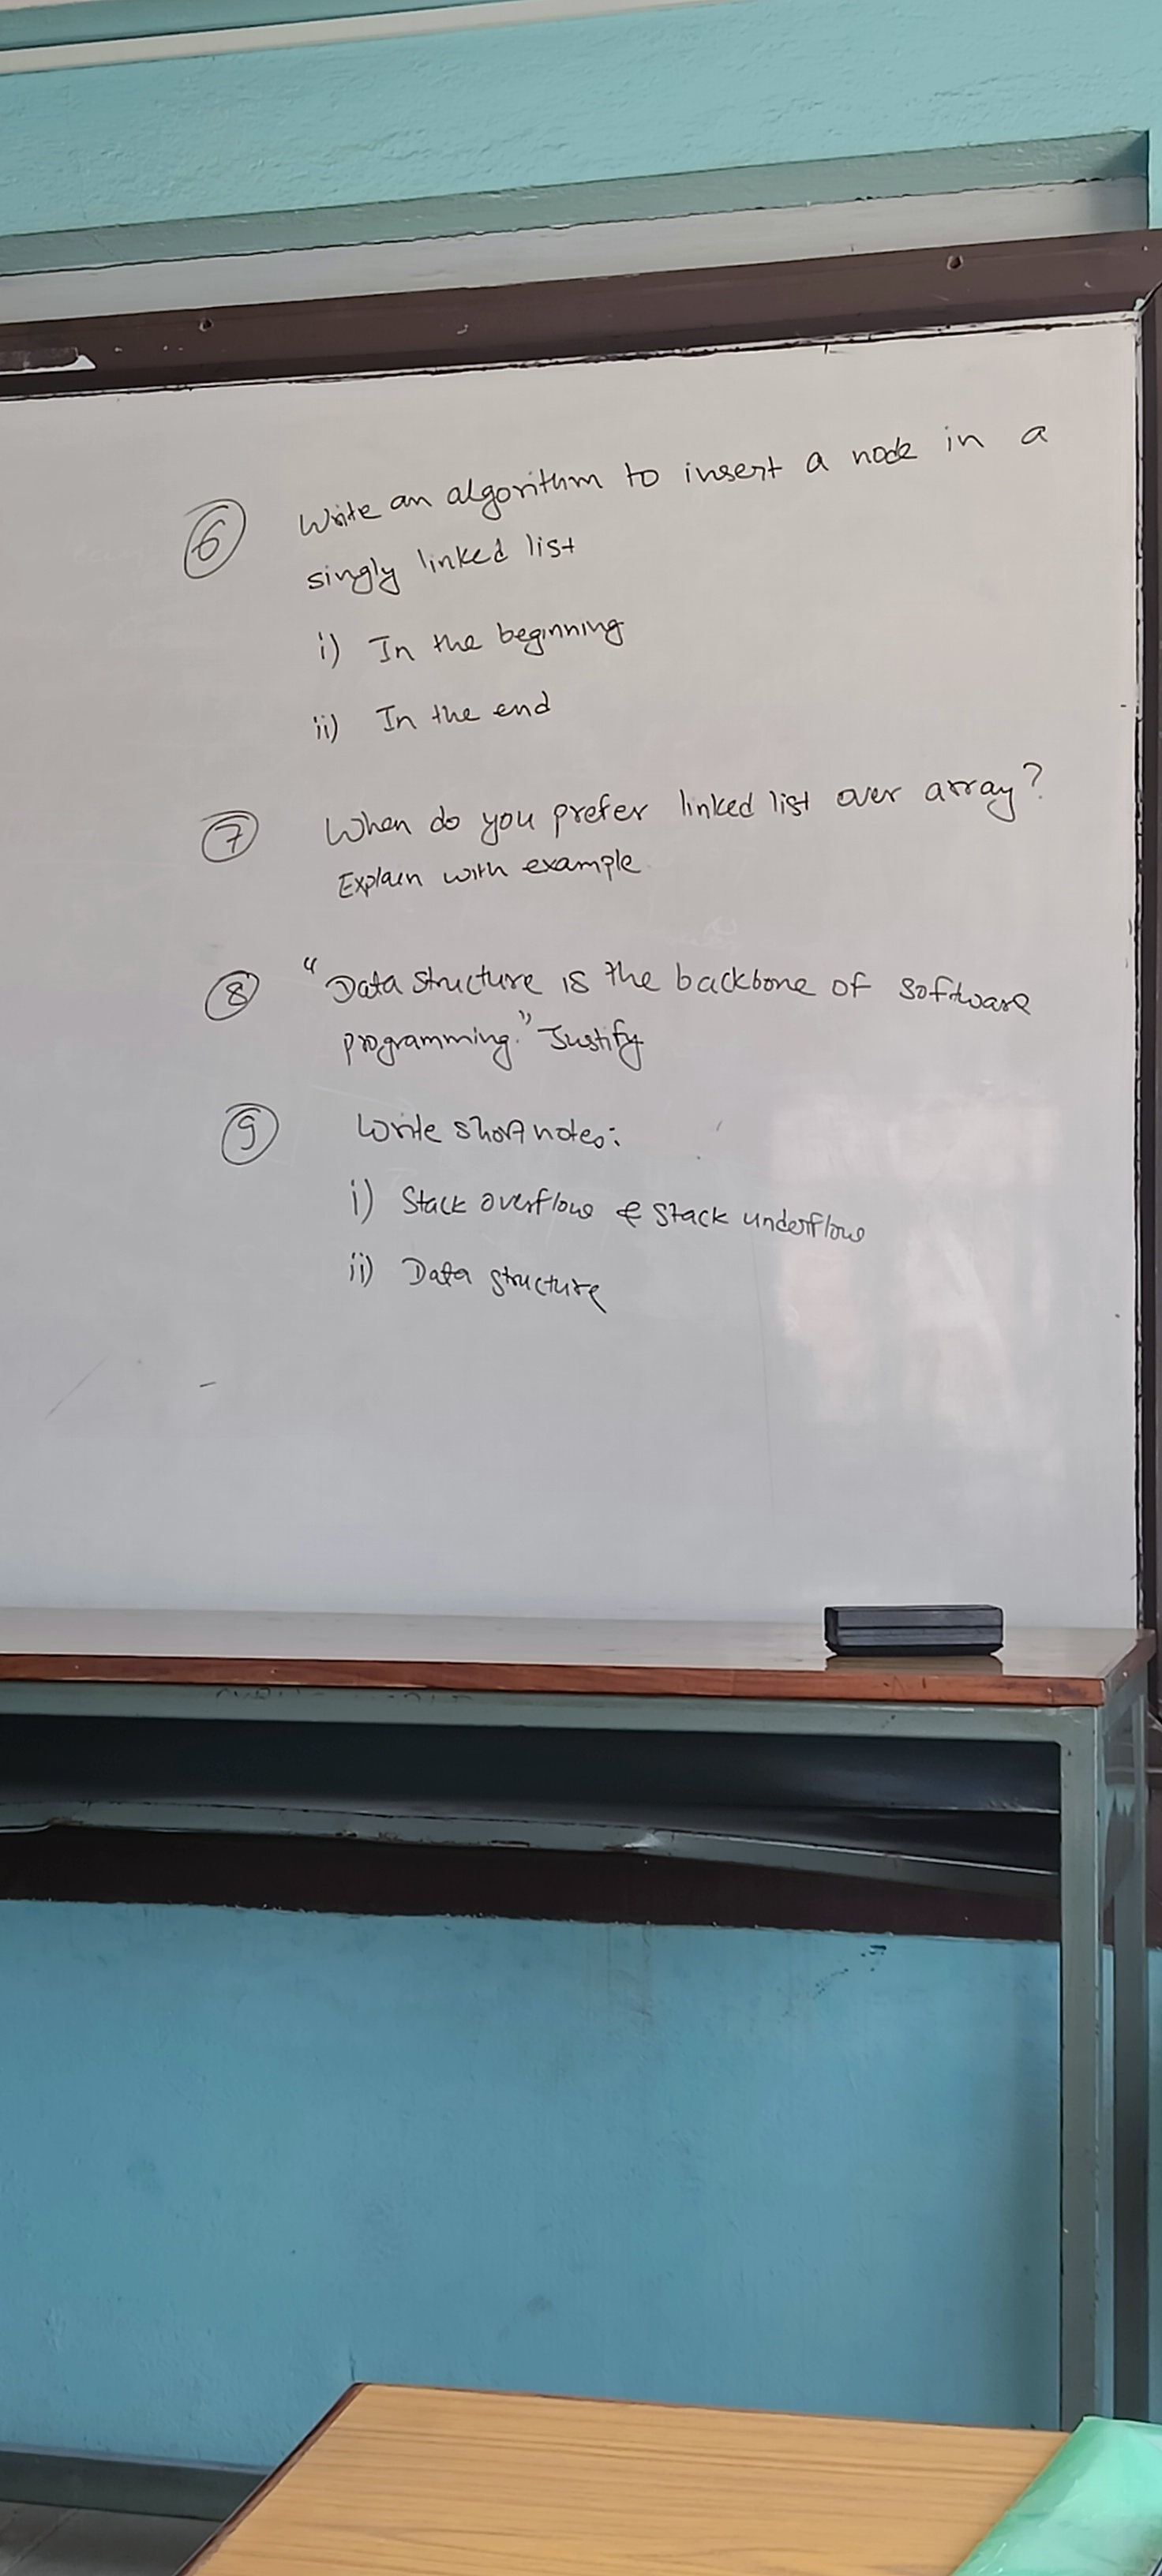 6 Write an algorithm to insert a node in a
singly linked list
i) In the beginning
ii) In the end
7 When do you prefer linked list over array?
Explain with example.
8 "Data structure is the backbone of software
programming." Justify
9 Write short notes:
i) Stack overflow & stack underflow
ii) Data structure